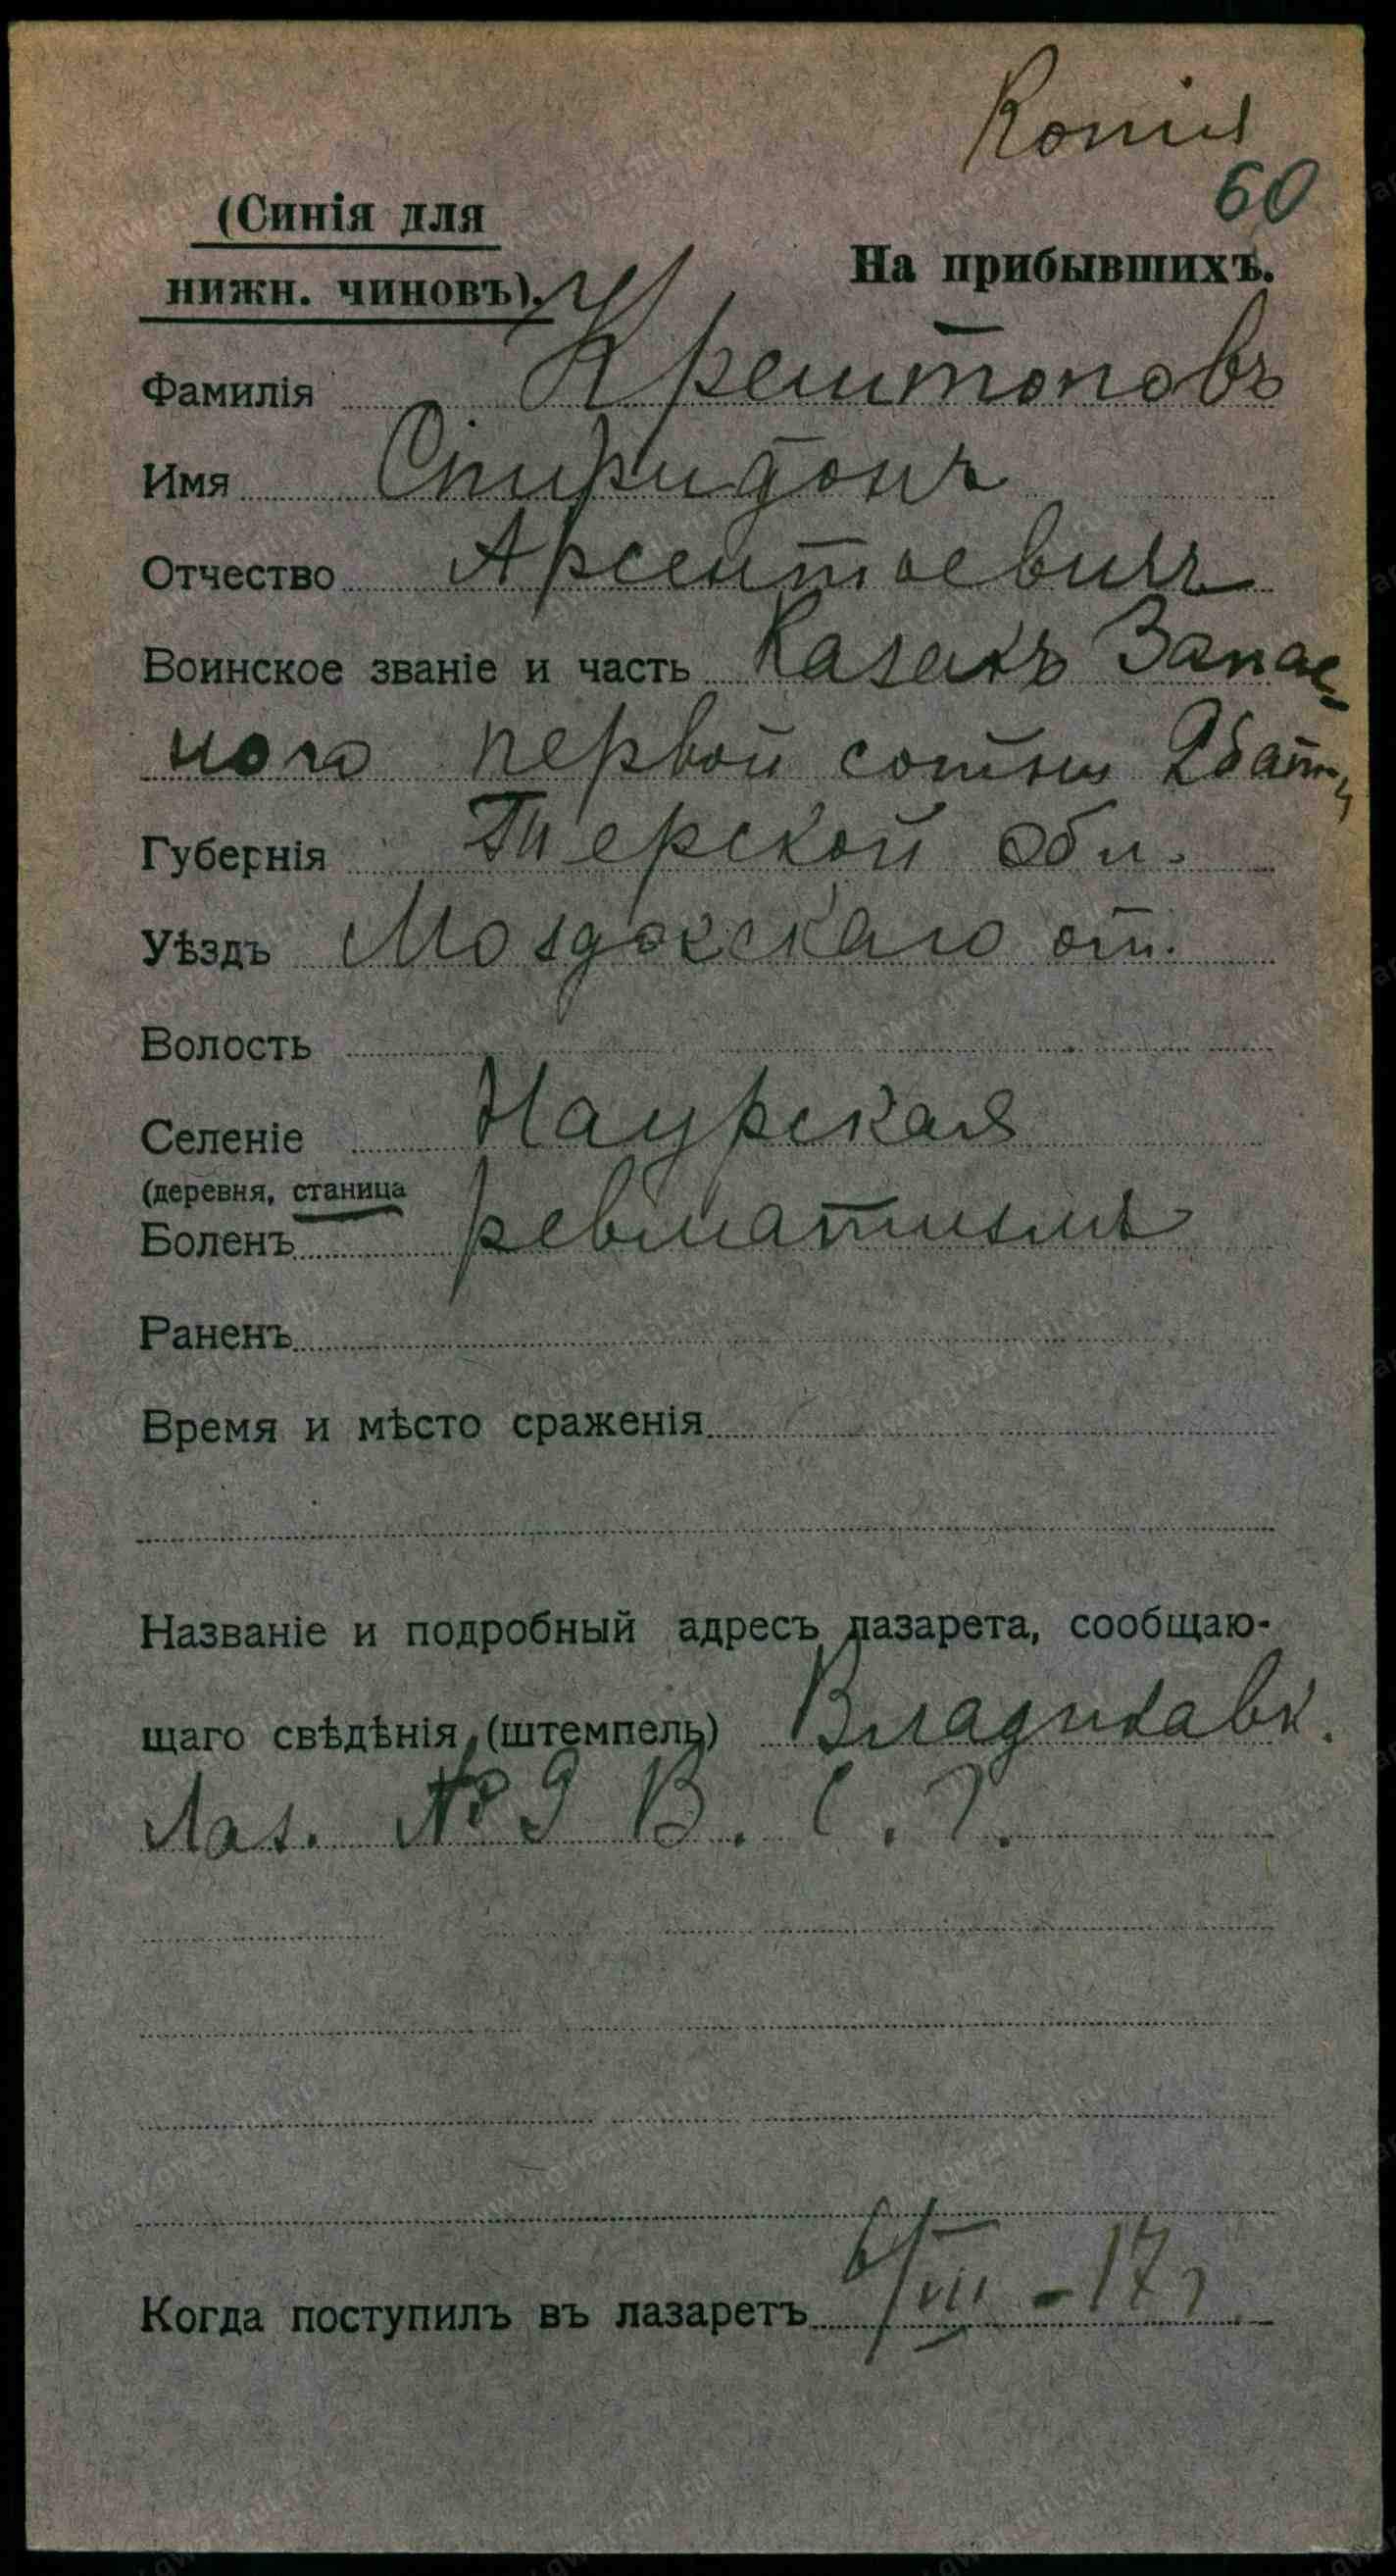 Копия
60
(Синія для
нижн. чиновъ).
На прибывшихъ.
Фамилія Крештоповъ
Имя Спиридонъ
Отчество Арсентьевичъ
Воинское званіе и часть Казакъ Запас-
ного первой сотни
Губернія Терской обл.
Уѣздъ Моздокскаго от.
Волость
Селеніе Наурская
(деревня, станица
Боленъ ревматизмъ
Раненъ
Время и мѣсто сраженія
Названіе и подробный адресъ лазарета, сообщаю-
щаго свѣдѣнія (штемпель) Владикавк.
Лаз. № 9 В. С. Г.
Когда поступилъ въ лазаретъ 6/VIII - 17 г